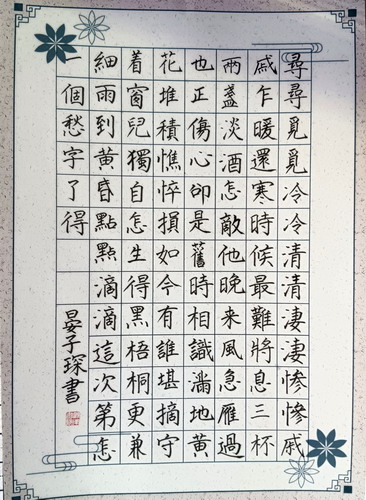 尋尋覓覓冷冷清清淒淒慘慘戚
戚乍暖還寒時候最難將息三杯
兩盞淡酒怎敵他晚来風急雁過
也正傷心卻是舊時相識滿地黃
花堆積憔悴損如今有誰堪摘守
着窗兒獨自怎生得黑梧桐更兼
細雨到黃昏點點滴滴這次第怎
一個愁字了得
晏子琛書